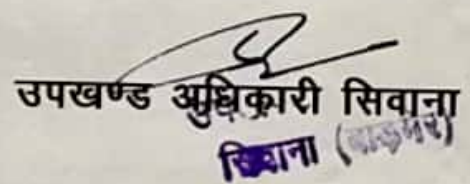 उपखण्ड अधिकारी सिवाना
सिवाना (बाड़मेर)